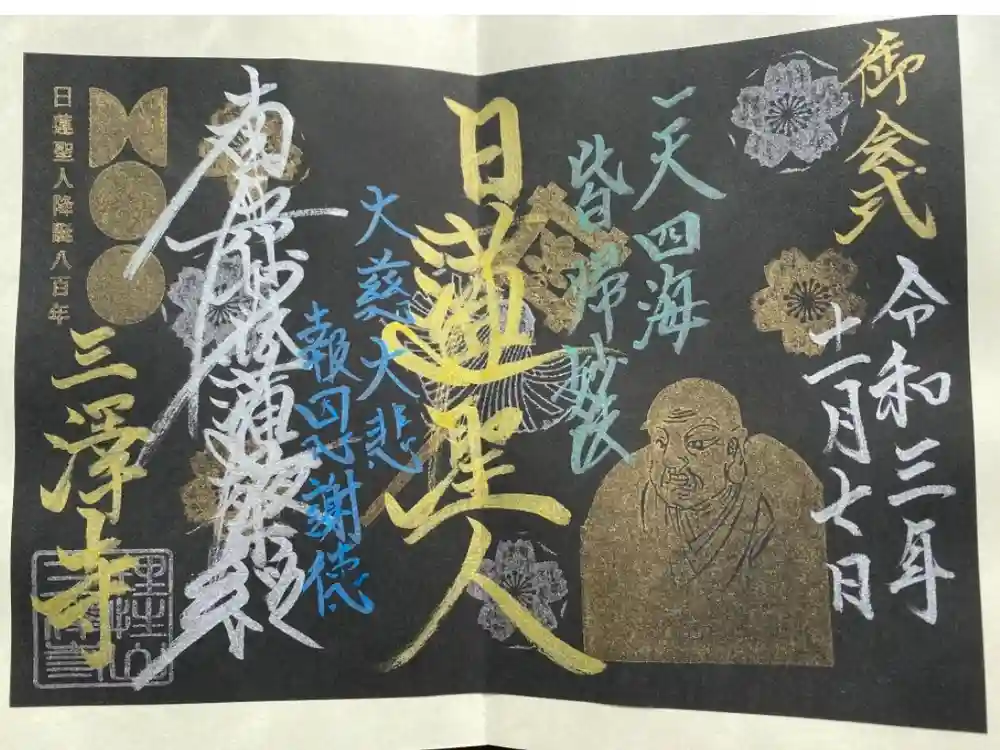 御会式
令和三年
十一月七日
一天四海
皆帰妙法
日蓮聖人
大慈大悲
報恩謝徳
南無妙法蓮華経
日蓮聖人降誕八百年
三澤寺